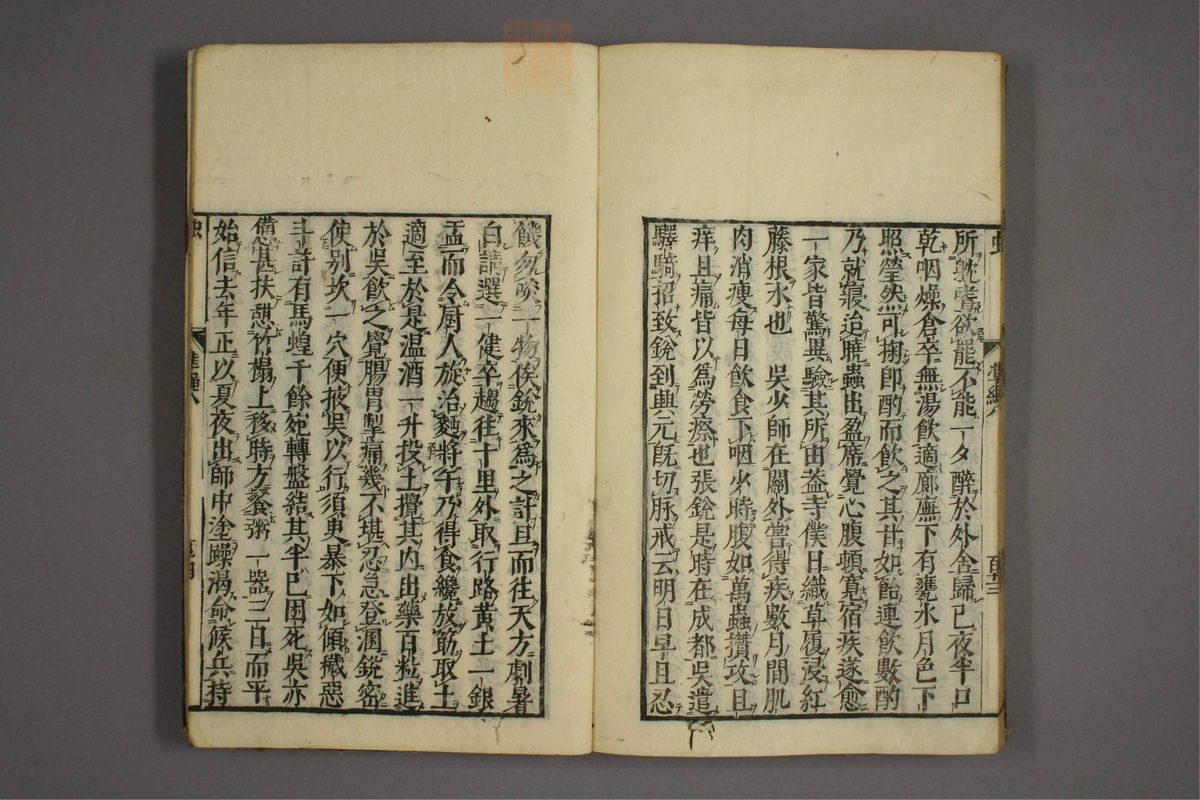 所耽嗜欲罷不能一夕醉於外舍歸已夜半口
乾咽燥倉卒無湯飲適廊廡下有甕水月色下
照瑩然可掬即酌而飲之其甘如飴連飲數酌
乃就寢迨曉蟲出盈席覺心腹頓寬宿疾遂愈
一家皆驚異驗其所由蓋寺僕日織草履浸紅
藤根水也 吳少師在關外嘗得疾數月間肌
肉消瘦每日飲食下咽少時腹如萬蟲攢攻且
痒且痛皆以為勞瘵也張銳是時在成都吳遣
驛騎招致銳到興元旣切脉戒云明日早且忍
饑勿啖一物俟銳來為之計旦而往天方劇暑
白請選一健卒趨往十里外取行路黄土一銀
盂而令厨人旋治麵將午乃得食纔放筯取土
適至於是温酒一升投土攪其内出藥百粒進
於吳飲之覺腸胃掣痛幾不堪忍急登溷銳密
使別坎一穴便掖吳以行須臾暴下如傾穢惡
斗許有馬蝗千餘宛轉盤結其半已困死吳亦
憊甚扶憩竹榻上移時方餐粥一器三日而平
始信去年正以夏夜出師中塗躁渴命候兵持